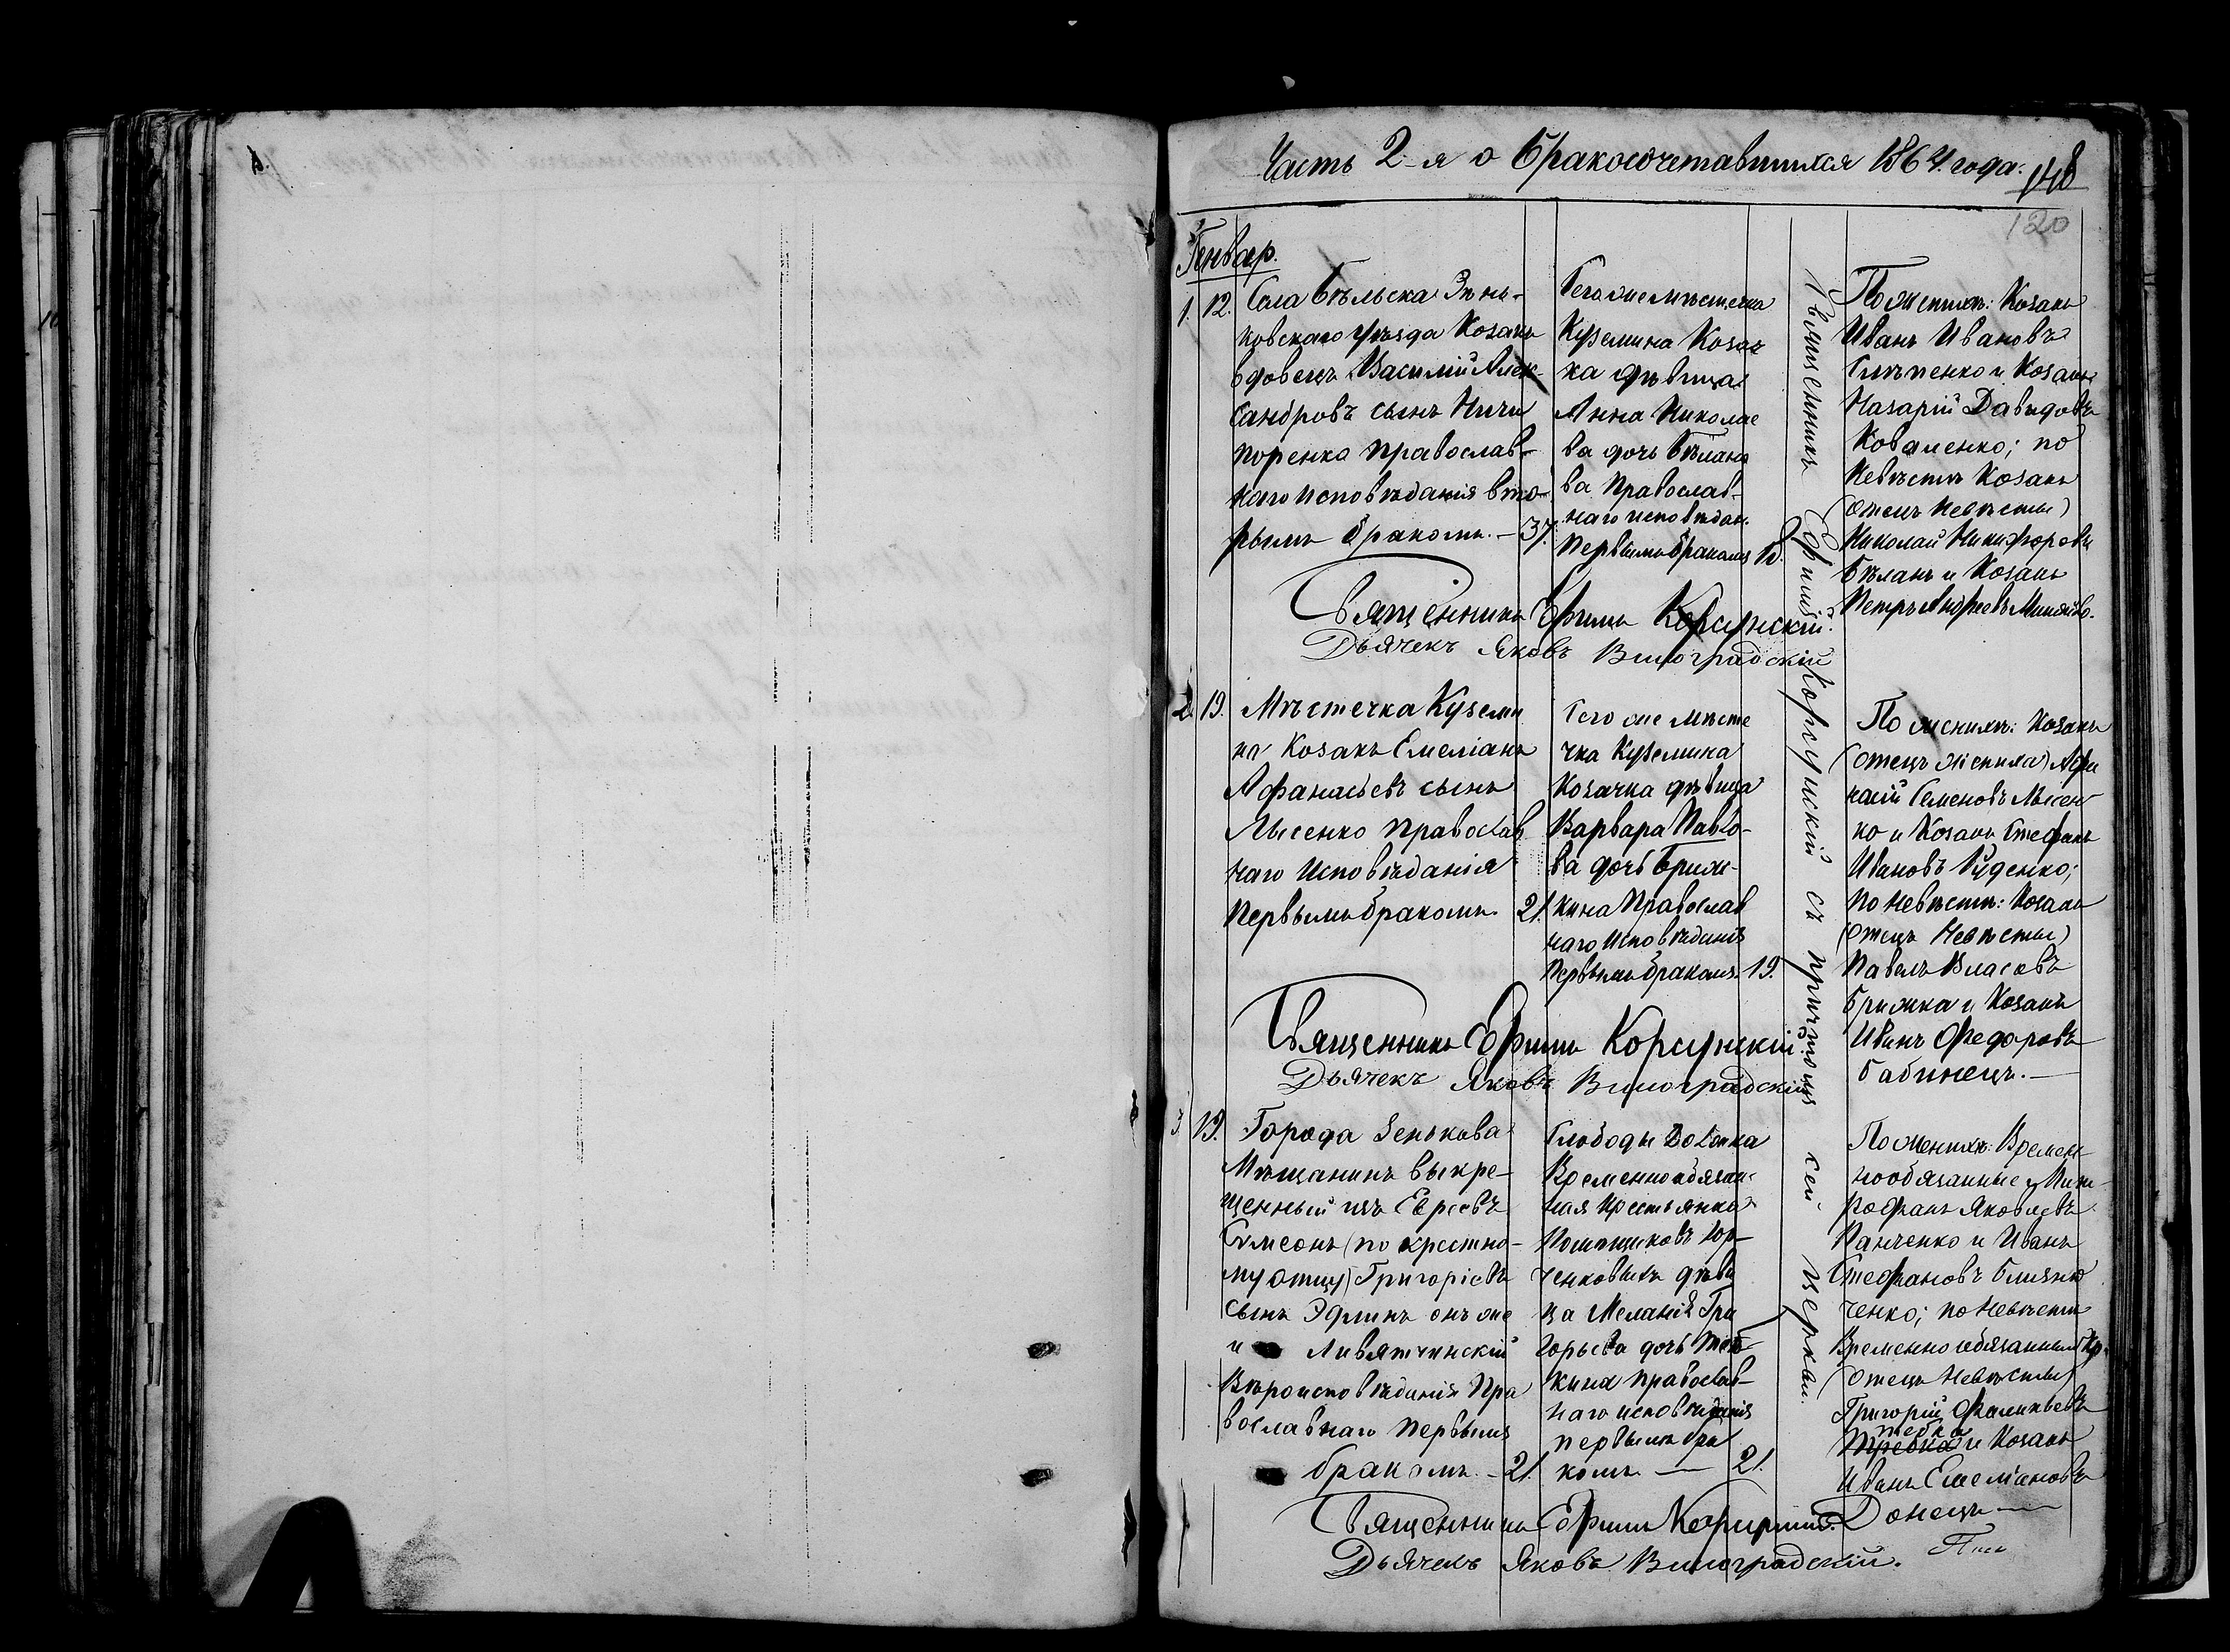 Часть 2-я о бракосочетавшихся 1864 года.
148
120
Генвар.
1. 12.
Села Бѣльска Зѣнь-
ковскаго уѣзда Козакъ
вдовецъ Василій Алек-
сандровъ сынъ Ничи
поренко православ-
наго исповѣданія вто-
рымъ бракомъ. — 37.
Сего же мѣстечка
Куземина Козач
ка дѣвица
Анна Николае
ва дочь Бѣлано
ва Православ-
наго исповѣдан.
Первымъ бракомъ 18.
По женихѣ: Козакъ
Иванъ Ивановъ
и Козакъ
Назарій Давидовъ
Коваленко; по
Невѣстѣ Козакъ
(отецъ Невѣсты)
Николай Никифоровъ
Бѣланъ и Козакъ
Петръ Андреевъ
Священникъ Ефимъ Корсунскій.
Дьячекъ Яковъ Виноградскій
Священникъ Ефимій Корсунскій съ причтомъ сей церкви.
2. 19.
Мѣстечка Куземи
на Козакъ Емеліанъ
Афанасьевъ сынъ
Лысенко православ
наго Исповѣданія
Первымъ бракомъ. 21.
Того же мѣсте
чка Куземина
Козачка дѣвица
Варвара Павло-
ва дочь Бриж-
кина Православ
наго Исповѣданія
Первымъ бракомъ. 19.
По женихѣ: Козакъ
(отецъ жениха) Афа
насій Семеновъ Лысен
ко и Козакъ Стефанъ
Ивановъ Руденко;
по Невѣстѣ: Козакъ
(отецъ Невѣсты)
Павелъ Власовъ
Брижка и Козакъ
Иванъ Федоровъ
Бабинецъ. —
Священникъ Ефимъ Корсунскій
Дьячекъ Яковъ Виноградскій
3 19.
Города Зенькова
Мѣщанинъ выкре-
щенный изъ Евреевъ
Симеонъ (по крестно-
му отцу) Григоріевъ
сынъ онъ же
и
Вѣроисповѣданія Пра
вославнаго Первымъ
бракомъ. — 21.
Слободы
Временнообязан-
ная крестьянка
Помѣщиковъ Юр-
ченковыхъ дѣви
ца Меланія Гри
горьева дочь
кина православ-
наго исповѣданія
первымъ бра
комъ — 21.
По женихѣ: Времен-
нообязанные
Яковлевъ
Панченко и Иванъ
Стефановъ Близню
ченко; по Невѣстѣ
Временнообязанный кр.
(отецъ Невѣсты)
Григорій
и Козакъ
Иванъ Емеліановъ
Донецъ —
Священникъ Ефимъ Корсунскій.
Дьячекъ Яковъ Виноградскій.